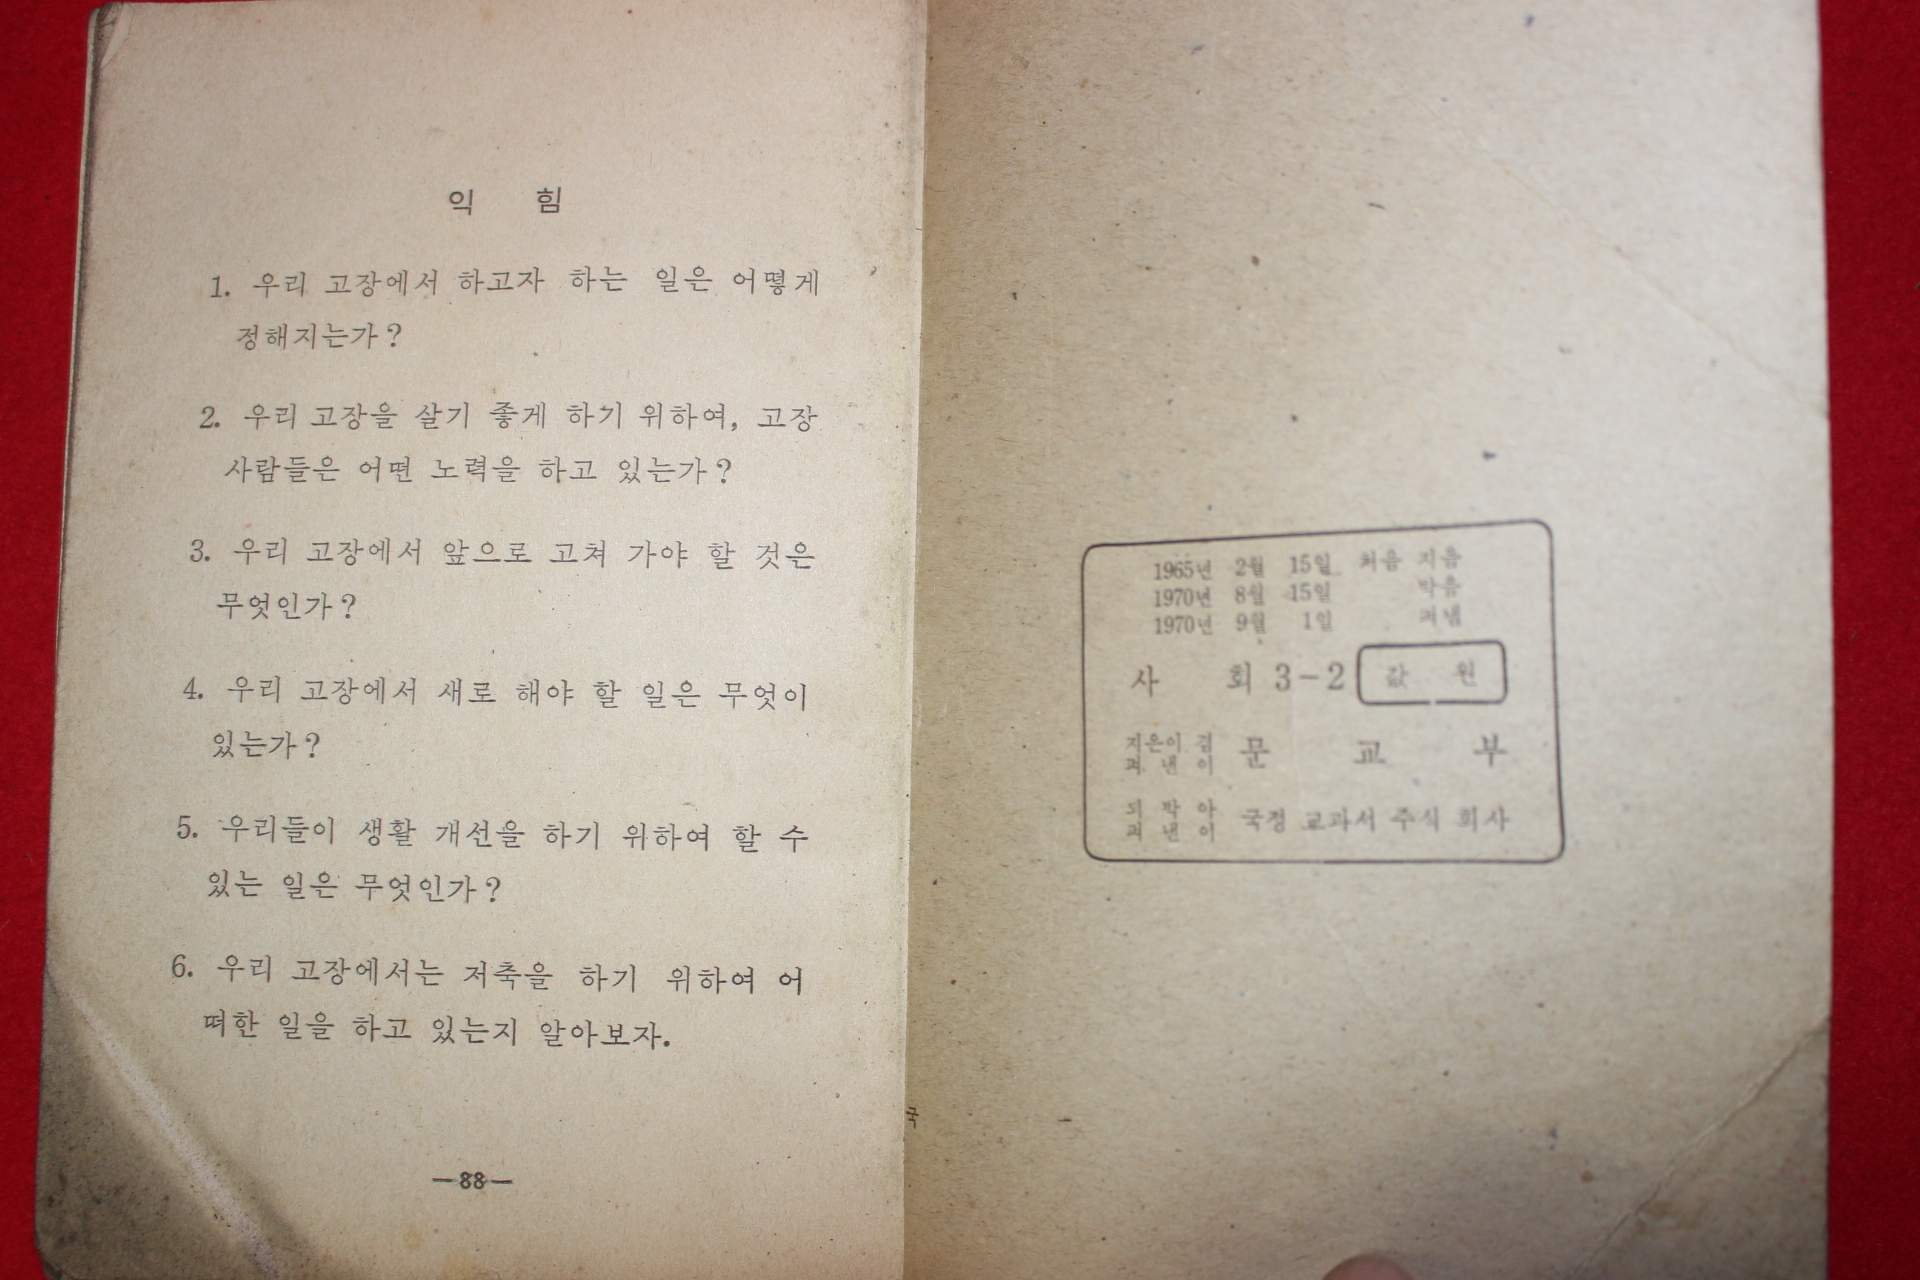 익 힘
1. 우리 고장에서 하고자 하는 일은 어떻게
정해지는가?
2. 우리 고장을 살기 좋게 하기 위하여, 고장
사람들은 어떤 노력을 하고 있는가?
3. 우리 고장에서 앞으로 고쳐 가야 할 것은
무엇인가?
4. 우리 고장에서 새로 해야 할 일은 무엇이
있는가?
5. 우리들이 생활 개선을 하기 위하여 할 수
있는 일은 무엇인가?
6. 우리 고장에서는 저축을 하기 위하여 어
떠한 일을 하고 있는지 알아보자.
—88—
국
1965년 2월 15일 처음 지음
1970년 8월 15일 박음
1970년 9월 1일 펴냄
사 회 3-2 값 원
지은이 겸
펴 낸 이 문 교 부
되 박 아
펴 낸 이 국정 교과서 주식 회사